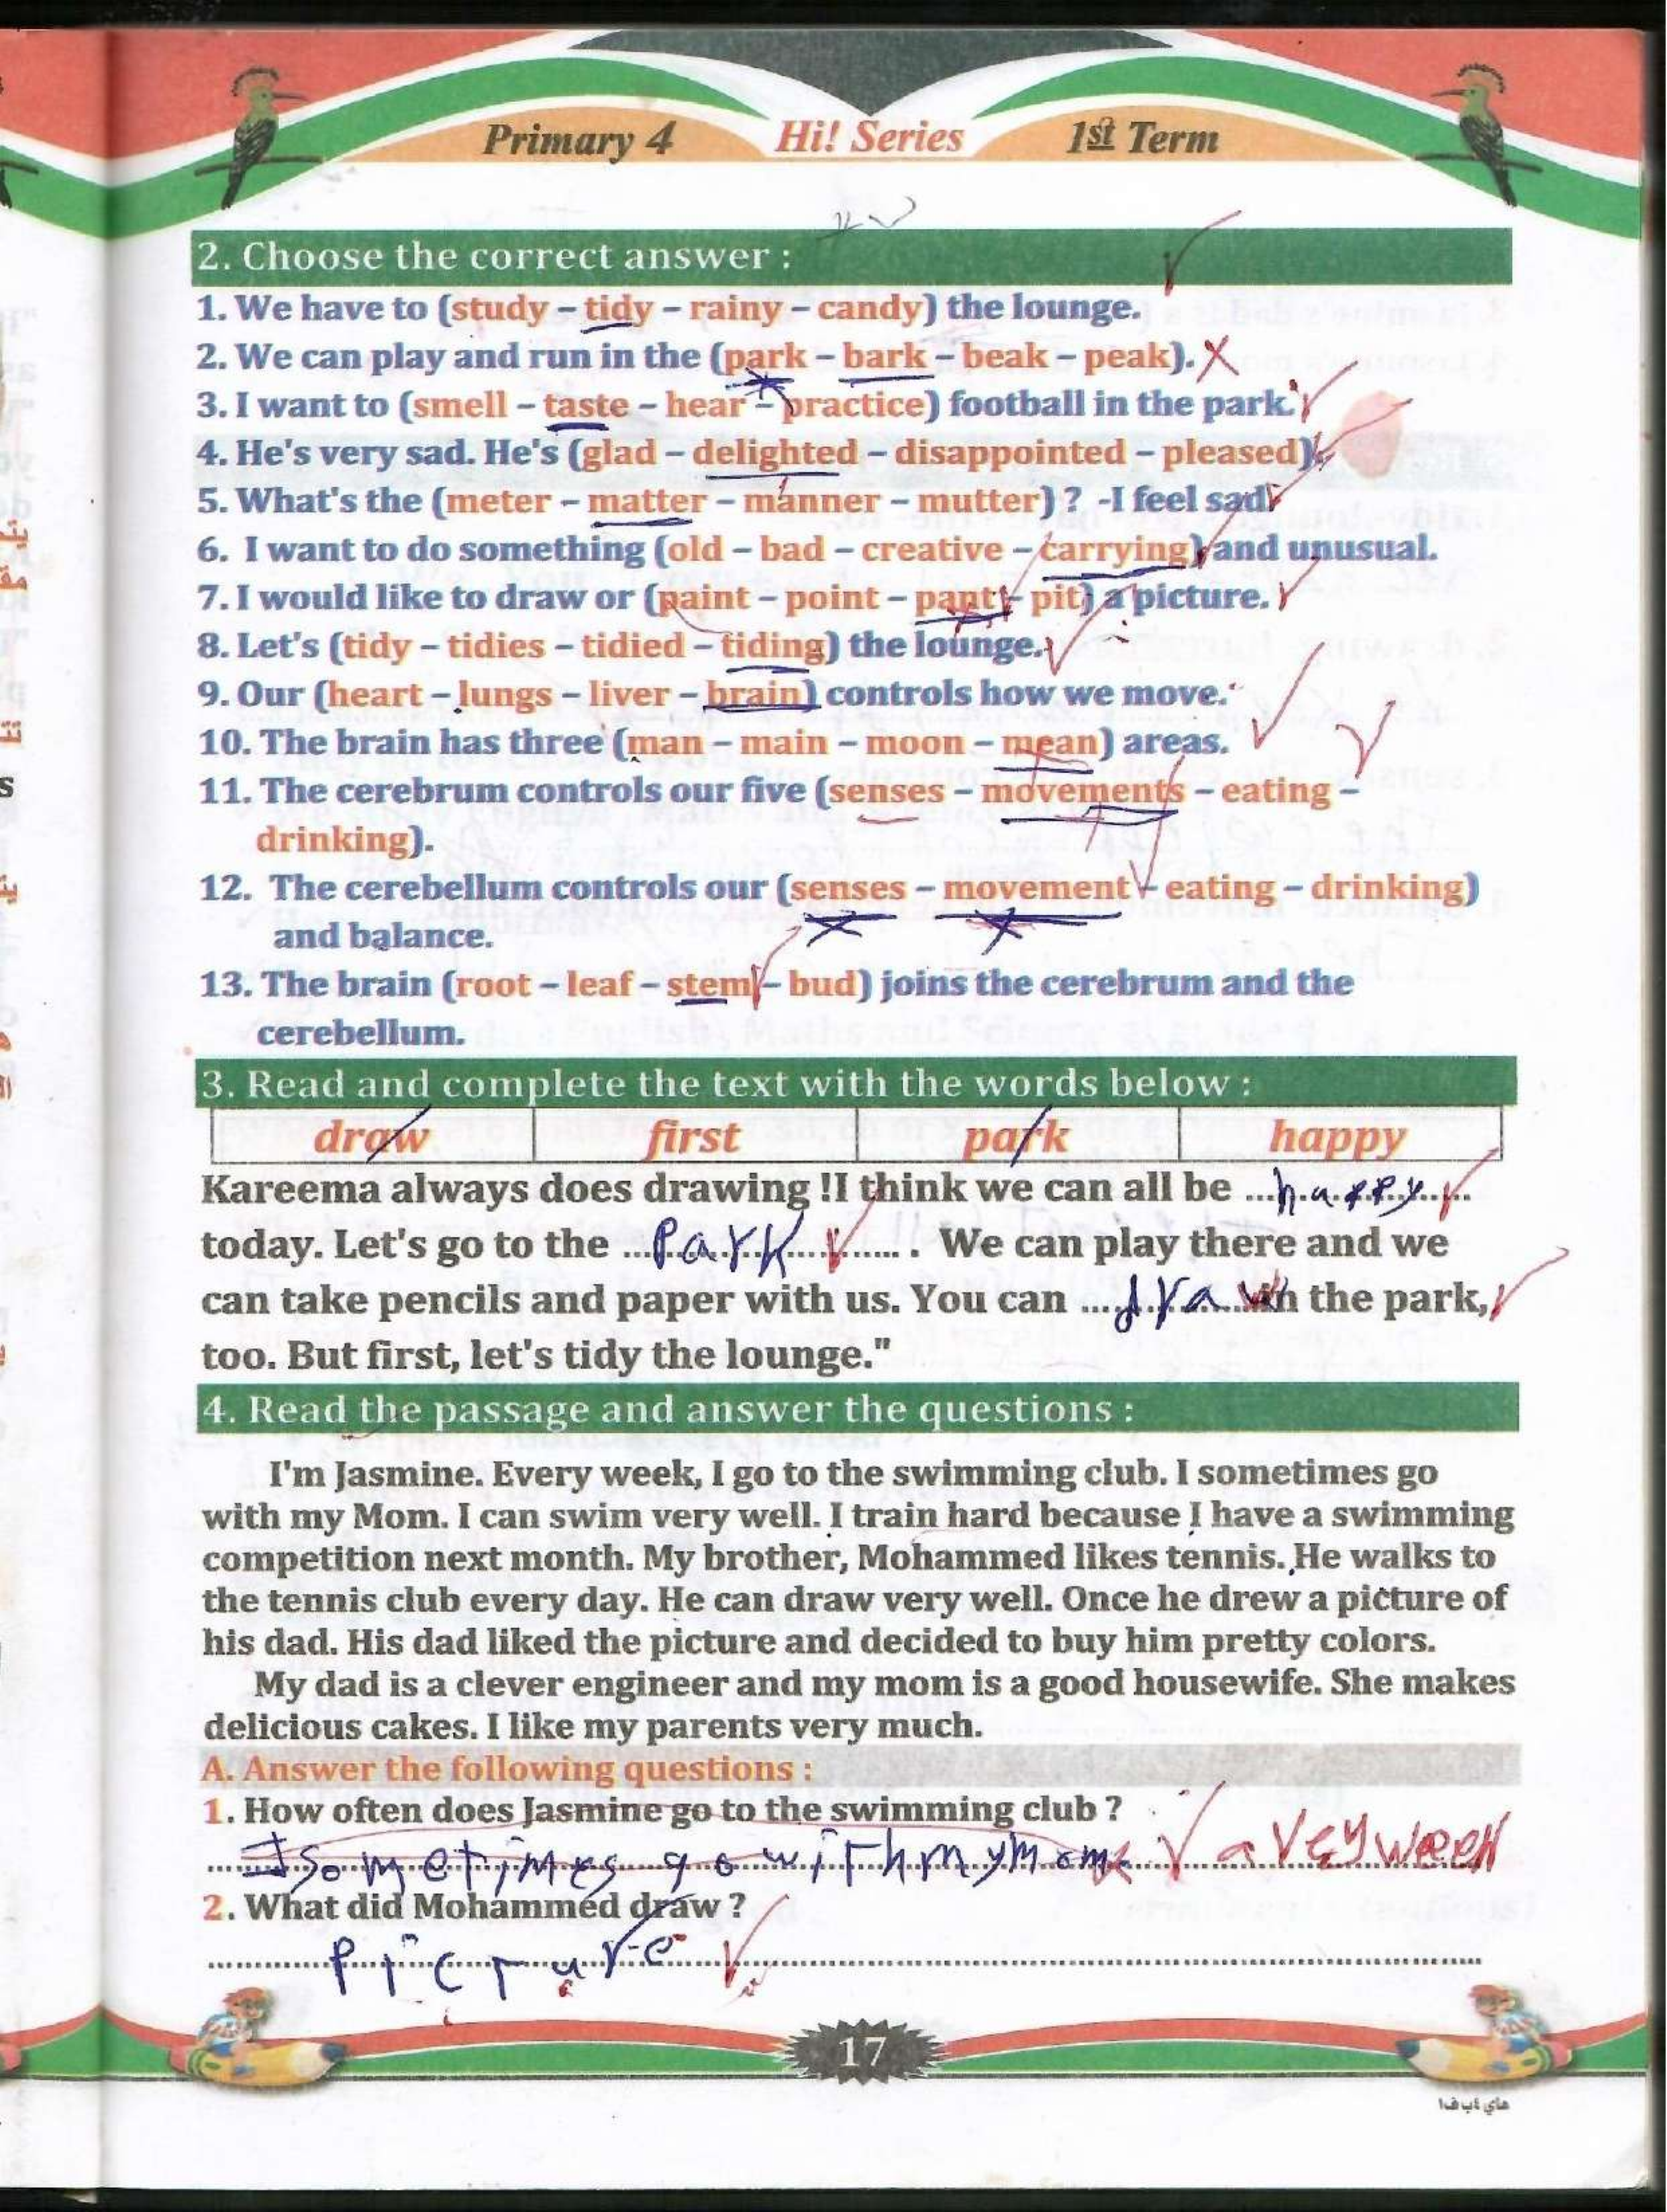 Primary 4 Hi! Series 1st Term
2. Choose the correct answer :
1. We have to (study – tidy – rainy – candy) the lounge.
2. We can play and run in the (park – bark – beak – peak).
3. I want to (smell – taste – hear – practice) football in the park.
4. He's very sad. He's (glad – delighted – disappointed – pleased)
5. What's the (meter – matter – manner – mutter) ? -I feel sad.
6. I want to do something (old – bad – creative – carrying) and unusual.
7. I would like to draw or (paint – point – pant – pit) a picture.
8. Let's (tidy – tidies – tidied – tiding) the lounge.
9. Our (heart – lungs – liver – brain) controls how we move.
10. The brain has three (man – main – moon – mean) areas.
11. The cerebrum controls our five (senses – movements – eating –
drinking).
12. The cerebellum controls our (senses – movement – eating – drinking)
and balance.
13. The brain (root – leaf – stem – bud) joins the cerebrum and the
cerebellum.
3. Read and complete the text with the words below :
draw first park happy
Kareema always does drawing !I think we can all be ...happy...
today. Let's go to the ...Park... . We can play there and we
can take pencils and paper with us. You can ....draw in the park,
too. But first, let's tidy the lounge."
4. Read the passage and answer the questions :
I'm Jasmine. Every week, I go to the swimming club. I sometimes go
with my Mom. I can swim very well. I train hard because I have a swimming
competition next month. My brother, Mohammed likes tennis. He walks to
the tennis club every day. He can draw very well. Once he drew a picture of
his dad. His dad liked the picture and decided to buy him pretty colors.
My dad is a clever engineer and my mom is a good housewife. She makes
delicious cakes. I like my parents very much.
A. Answer the following questions :
1. How often does Jasmine go to the swimming club ?
I sometimes go with my Mom avey week
2. What did Mohammed draw ?
Picture
17
هاي ٤ب ف١